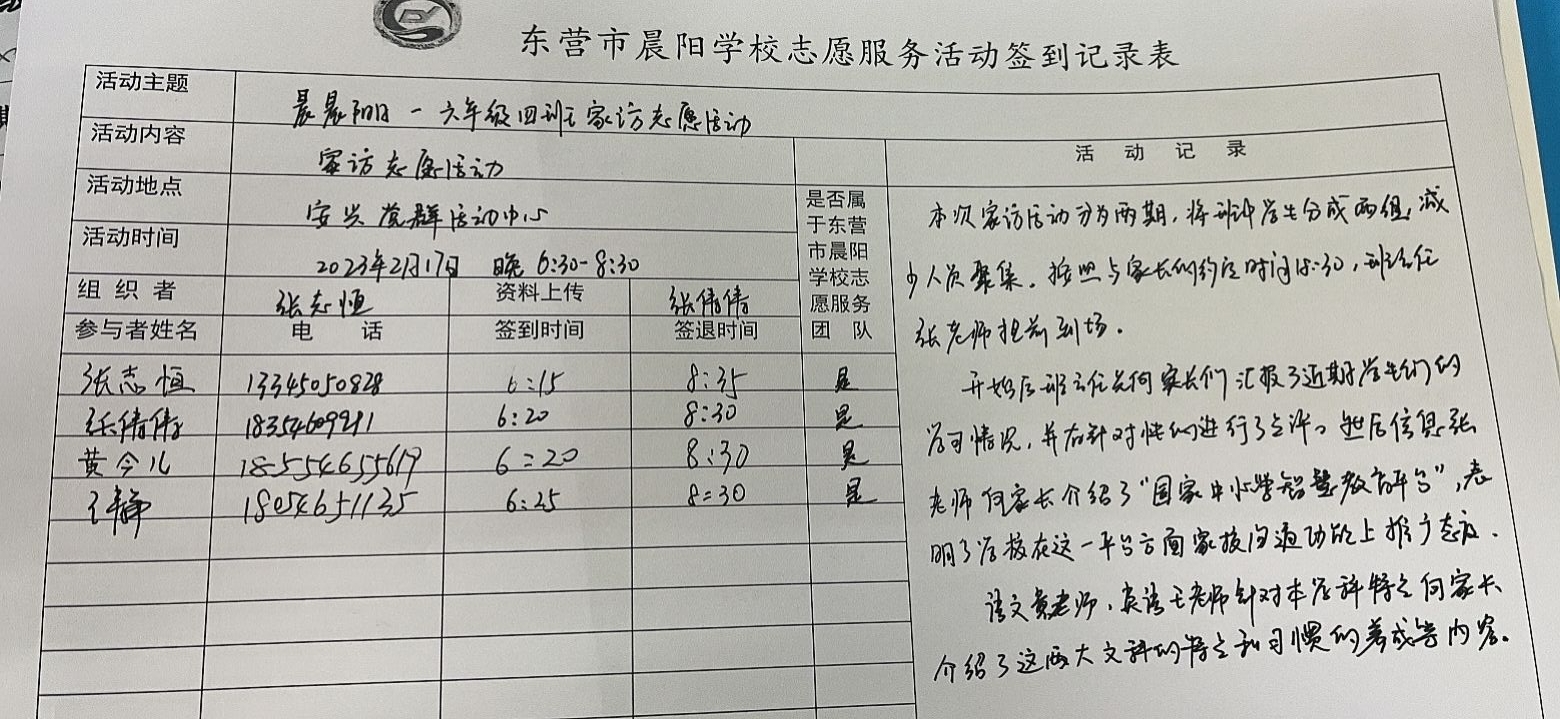 东营市晨阳学校志愿服务活动签到记录表
活动主题 晨晨阳阳一六年级四班家访志愿活动
活动内容 家访志愿活动
活动地点 安兴党群活动中心
活动时间 2023年2月17日 晚 6:30-8:30
组织者 张志恒 资料上传 张倩倩
参与者姓名 电话 签到时间 签退时间 是否属于东营市晨阳学校志愿服务团队
张志恒 13345050828 6:15 8:35 是
张倩倩 6:20 8:30 是
黄令儿 18554655619 6:20 8:30 是
王静 18054651135 6:25 8:30 是
活动记录
本次家访活动分为两期,将班中学生分成两组,减
少人员聚集。按照与家长们约定时间18:30,班主任
张老师提前到场。
开始后班主任先向家长们汇报了近期学生们的
学习情况,并有针对性的进行了点评。然后信息张
老师向家长介绍了“国家中小学智慧教育平台”,表
明了学校在这一平台方面家校沟通功能上推广态度。
语文黄老师,英语王老师针对本学科特点向家长
介绍了这两大文科的特点和习惯的养成等内容。